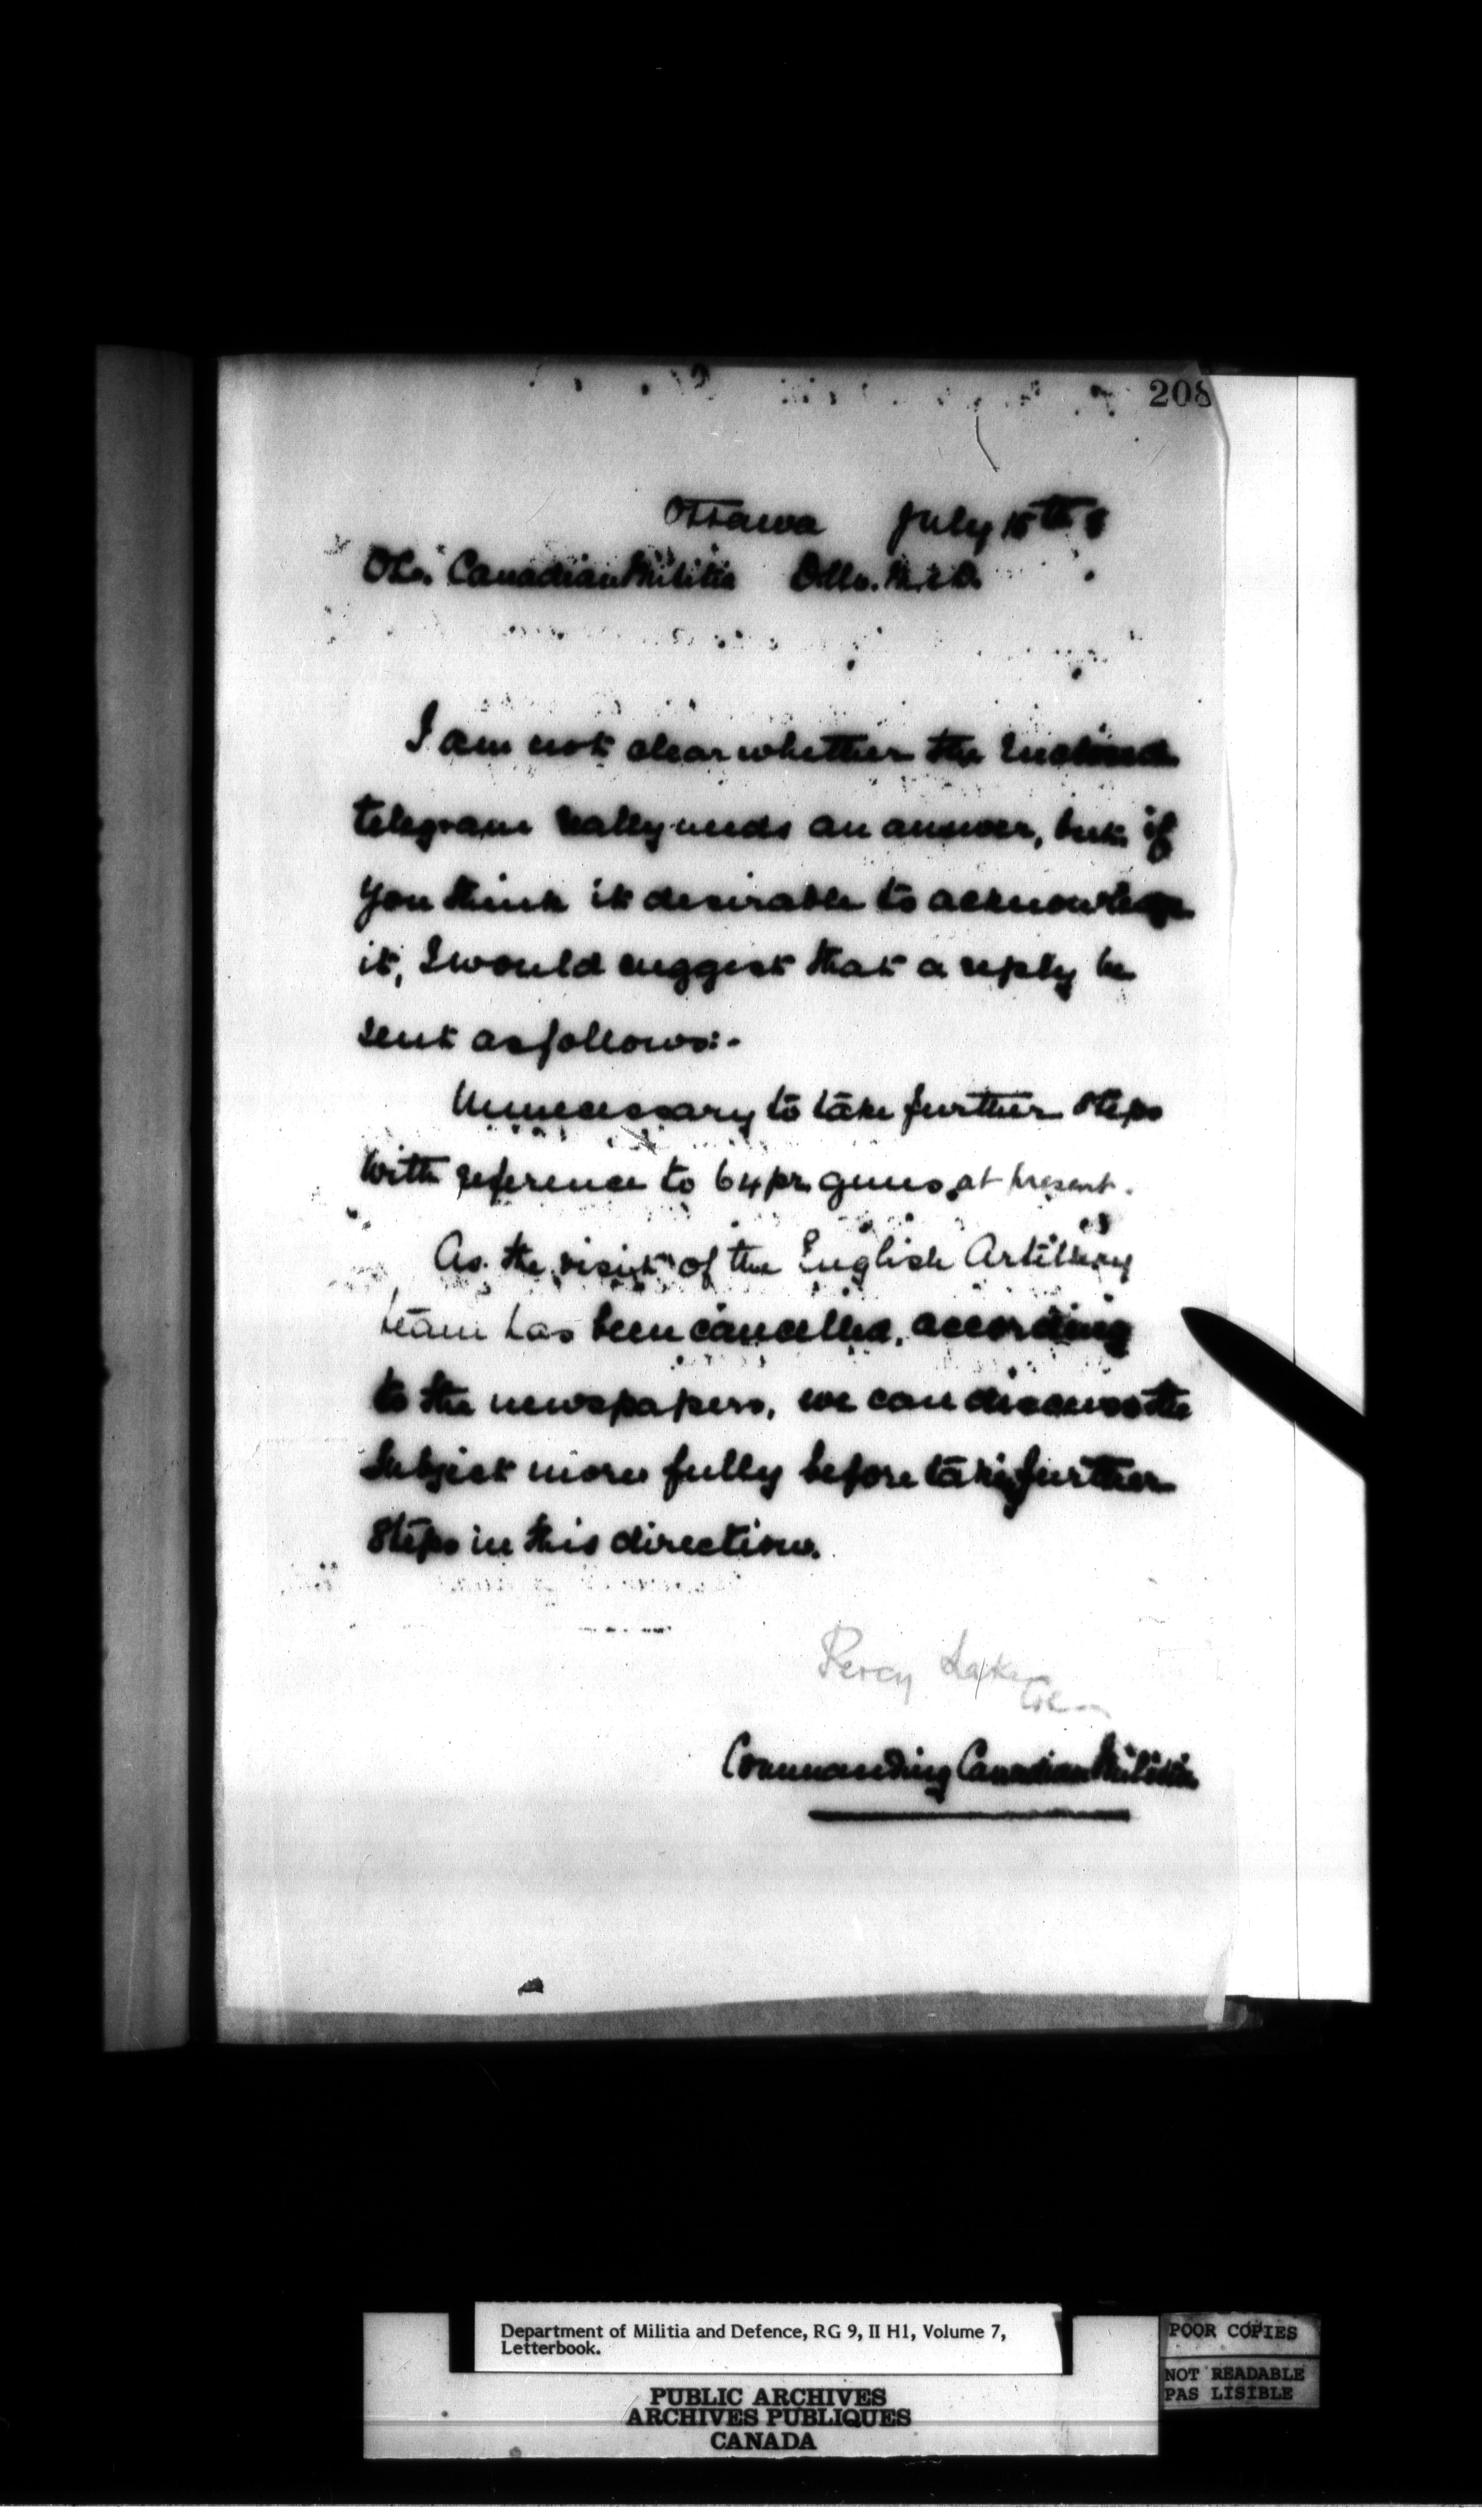 208
Ottawa July 15th 8
Canadian Militia
I am not clear whether the enclosed
telegram really needs an answer, but if
you think it desirable to acknowledge
it, I would suggest that a reply be
sent as follows:-
Unnecessary to take further steps
with reference to 64 pr. guns, at present.
As the visit of the English Artillery
team has been cancelled, according
to the newspapers, we can discuss the
subject more fully before taking further
steps in this direction.
Percy Lake
Commanding Canadian Militia
Department of Militia and Defence, RG 9, II H1, Volume 7,
Letterbook.
POOR COPIES
NOT READABLE
PAS LISIBLE
PUBLIC ARCHIVES
ARCHIVES PUBLIQUES
CANADA